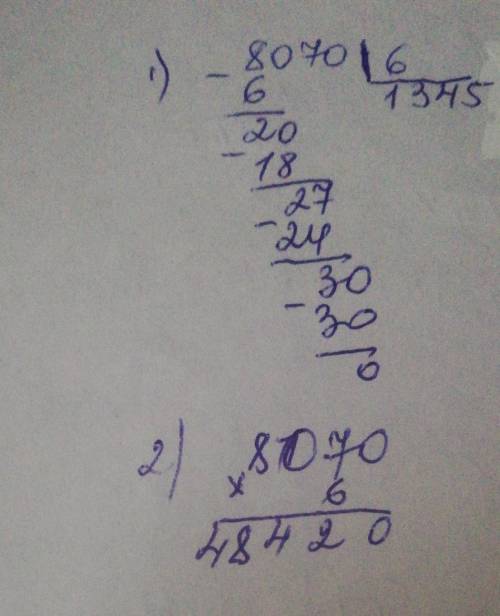 1) - 8070 | 6
6 1345
20
- 18
27
- 24
30
- 30
0
2) 8070
x 6
48420